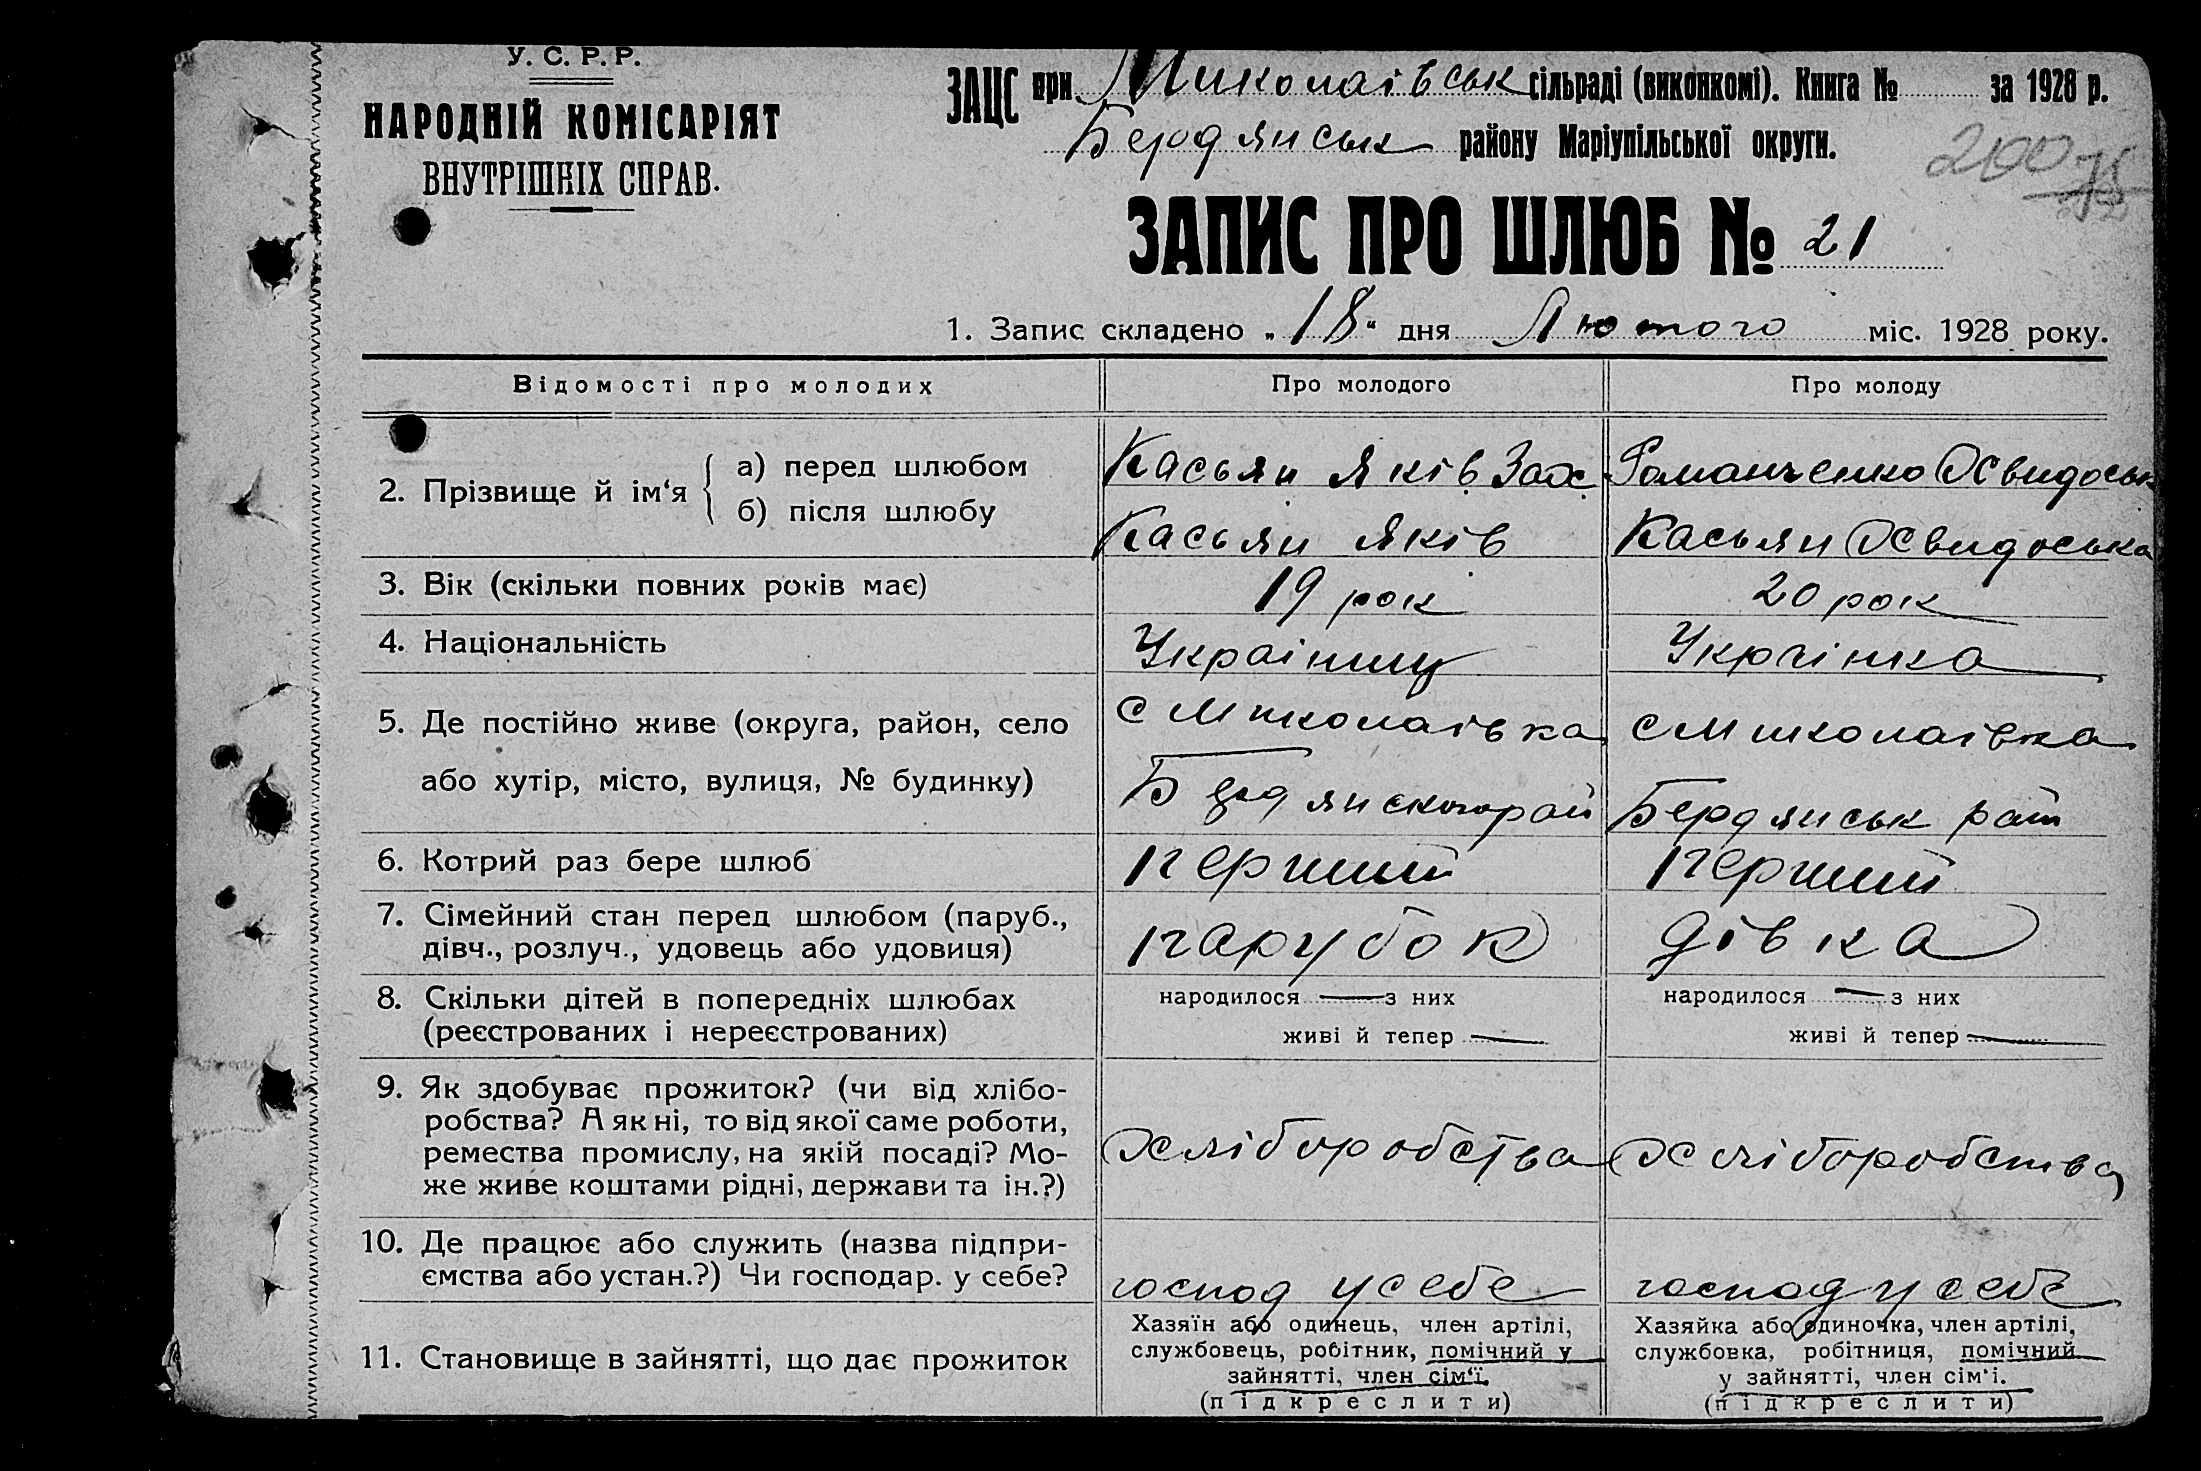 У. С. Р. Р.
НАРОДНІЙ КОМІСАРІЯТ
ВНУТРІШНІХ СПРАВ.
ЗАЦС при Миколаівськ сільраді (виконкомі). Книга № за 1928 р.
Бердянськ району Маріупільської округи.
200
ЗАПИС ПРО ШЛЮБ № 21
1. Запис складено „18“ дня Лютого міс. 1928 року.
Відомості про молодих Про молодого Про молоду
2. Прізвище й ім‘я
а) перед шлюбом Касьян Яків Зах Романченко Хвидоськ
б) після шлюбу Касьян Яків Касьян Хвидоська
3. Вік (скільки повних років має) 19 рок 20 рок
4. Національність Украіниц Укрпінка
5. Де постійно живе (округа, район, село с Миколаівка с Миколаівка
або хутір, місто, вулиця, № будинку) Бердянского рай Бердянськ рай
6. Котрий раз бере шлюб перший перший
7. Сімейний стан перед шлюбом (паруб.,
дівч., розлуч., удовець або удовиця) парубок дівка
8. Скільки дітей в попередніх шлюбах народилося — з них народилося — з них
(реєстрованих і нереєстрованих) живі й тепер — живі й тепер —
9. Як здобуває прожиток? (чи від хлібо-
робства? А як ні, то від якої саме роботи,
ремества промислу, на якій посаді? Мо- хліборобства хліборобства
же живе коштами рідні, держави та ін.?)
10. Де працює або служить (назва підпри-
ємства або устан.?) Чи господар. у себе? господ у себе господ у себе
11. Становище в зайнятті, що дає прожиток
Хазяїн або одинець, член артілі,
службовець, робітник, помічний у
зайнятті, член сім‘ї.
(підкреслити)
Хазяйка або одиночка, член артілі,
службовка, робітниця, помічний
у зайнятті, член сім‘і.
(підкреслити)